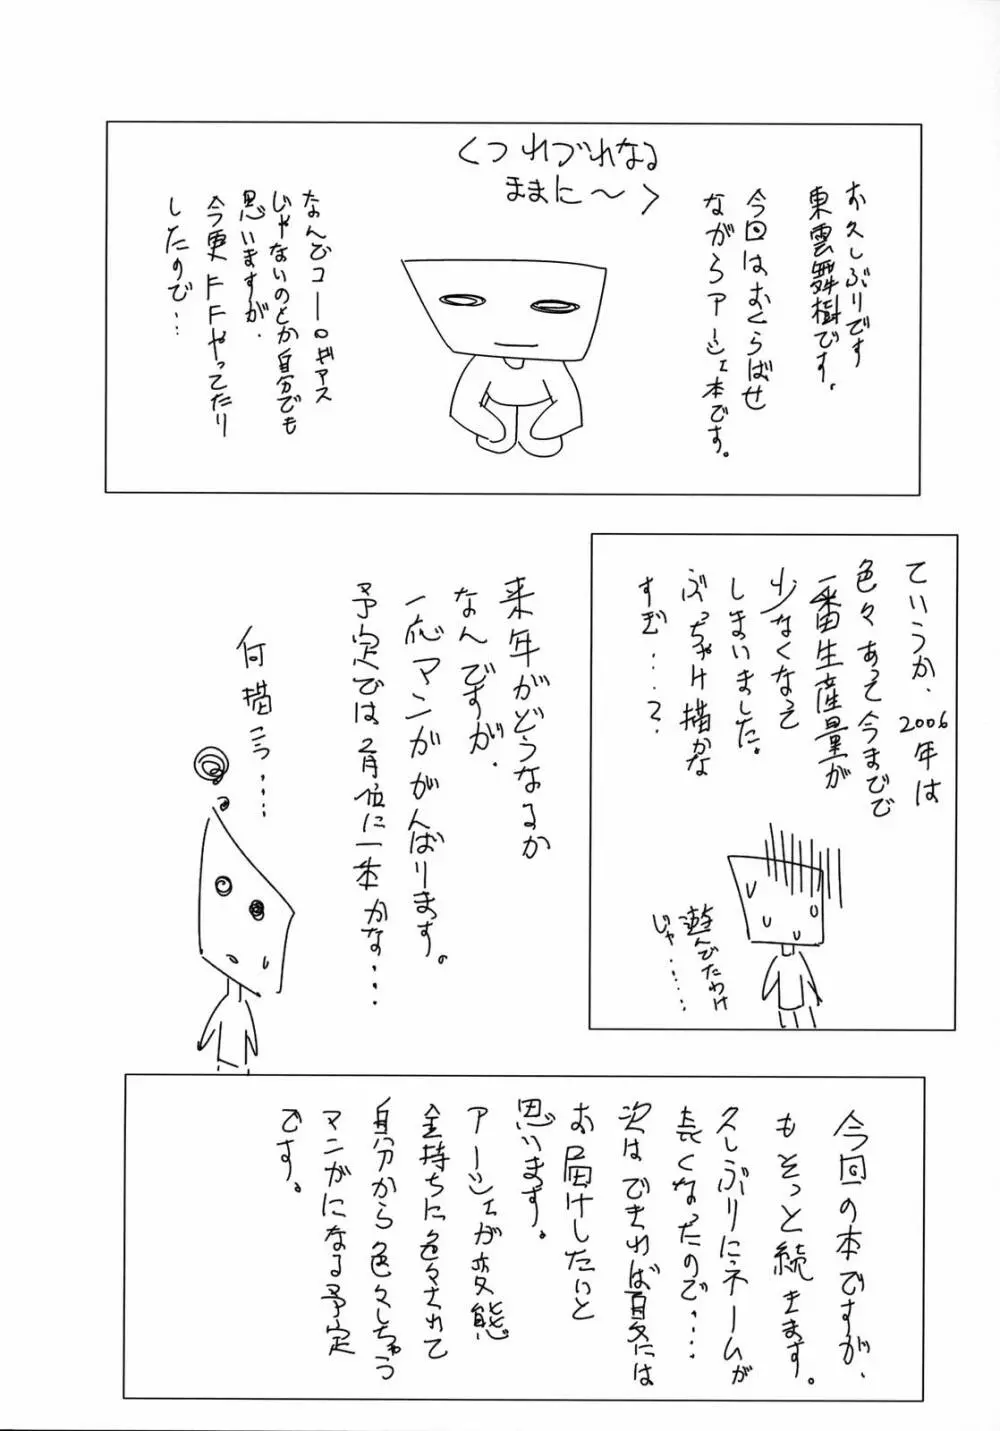 くつれづれなる
ままに〜>
お久しぶりです
東雲舞樹です。
今回はおくらばせ
ながらアーシェ本です。
なんでコードギアス
じゃないのとか自分でも
思いますが、
今更FFやってたり
したので…
ていうか、2006年は
色々あって今までで
一番生産量が
少なくなって
しまいました。
ぶっちゃけ描かな
すぎ…?
遊んでたわけ
じゃ……
来年がどうなるか
なんですが、
一応マンガがんばります。
予定では2月位に一本かな…
何描こう……
今回の本ですが、
もそっと続きます。
久しぶりにネームが
長くなったので…
次はできれば夏には
お届けしたいと
思います。
アーシェが変態
金持ちに色々されて
自分から色々しちゃう
マンガになる予定
です。